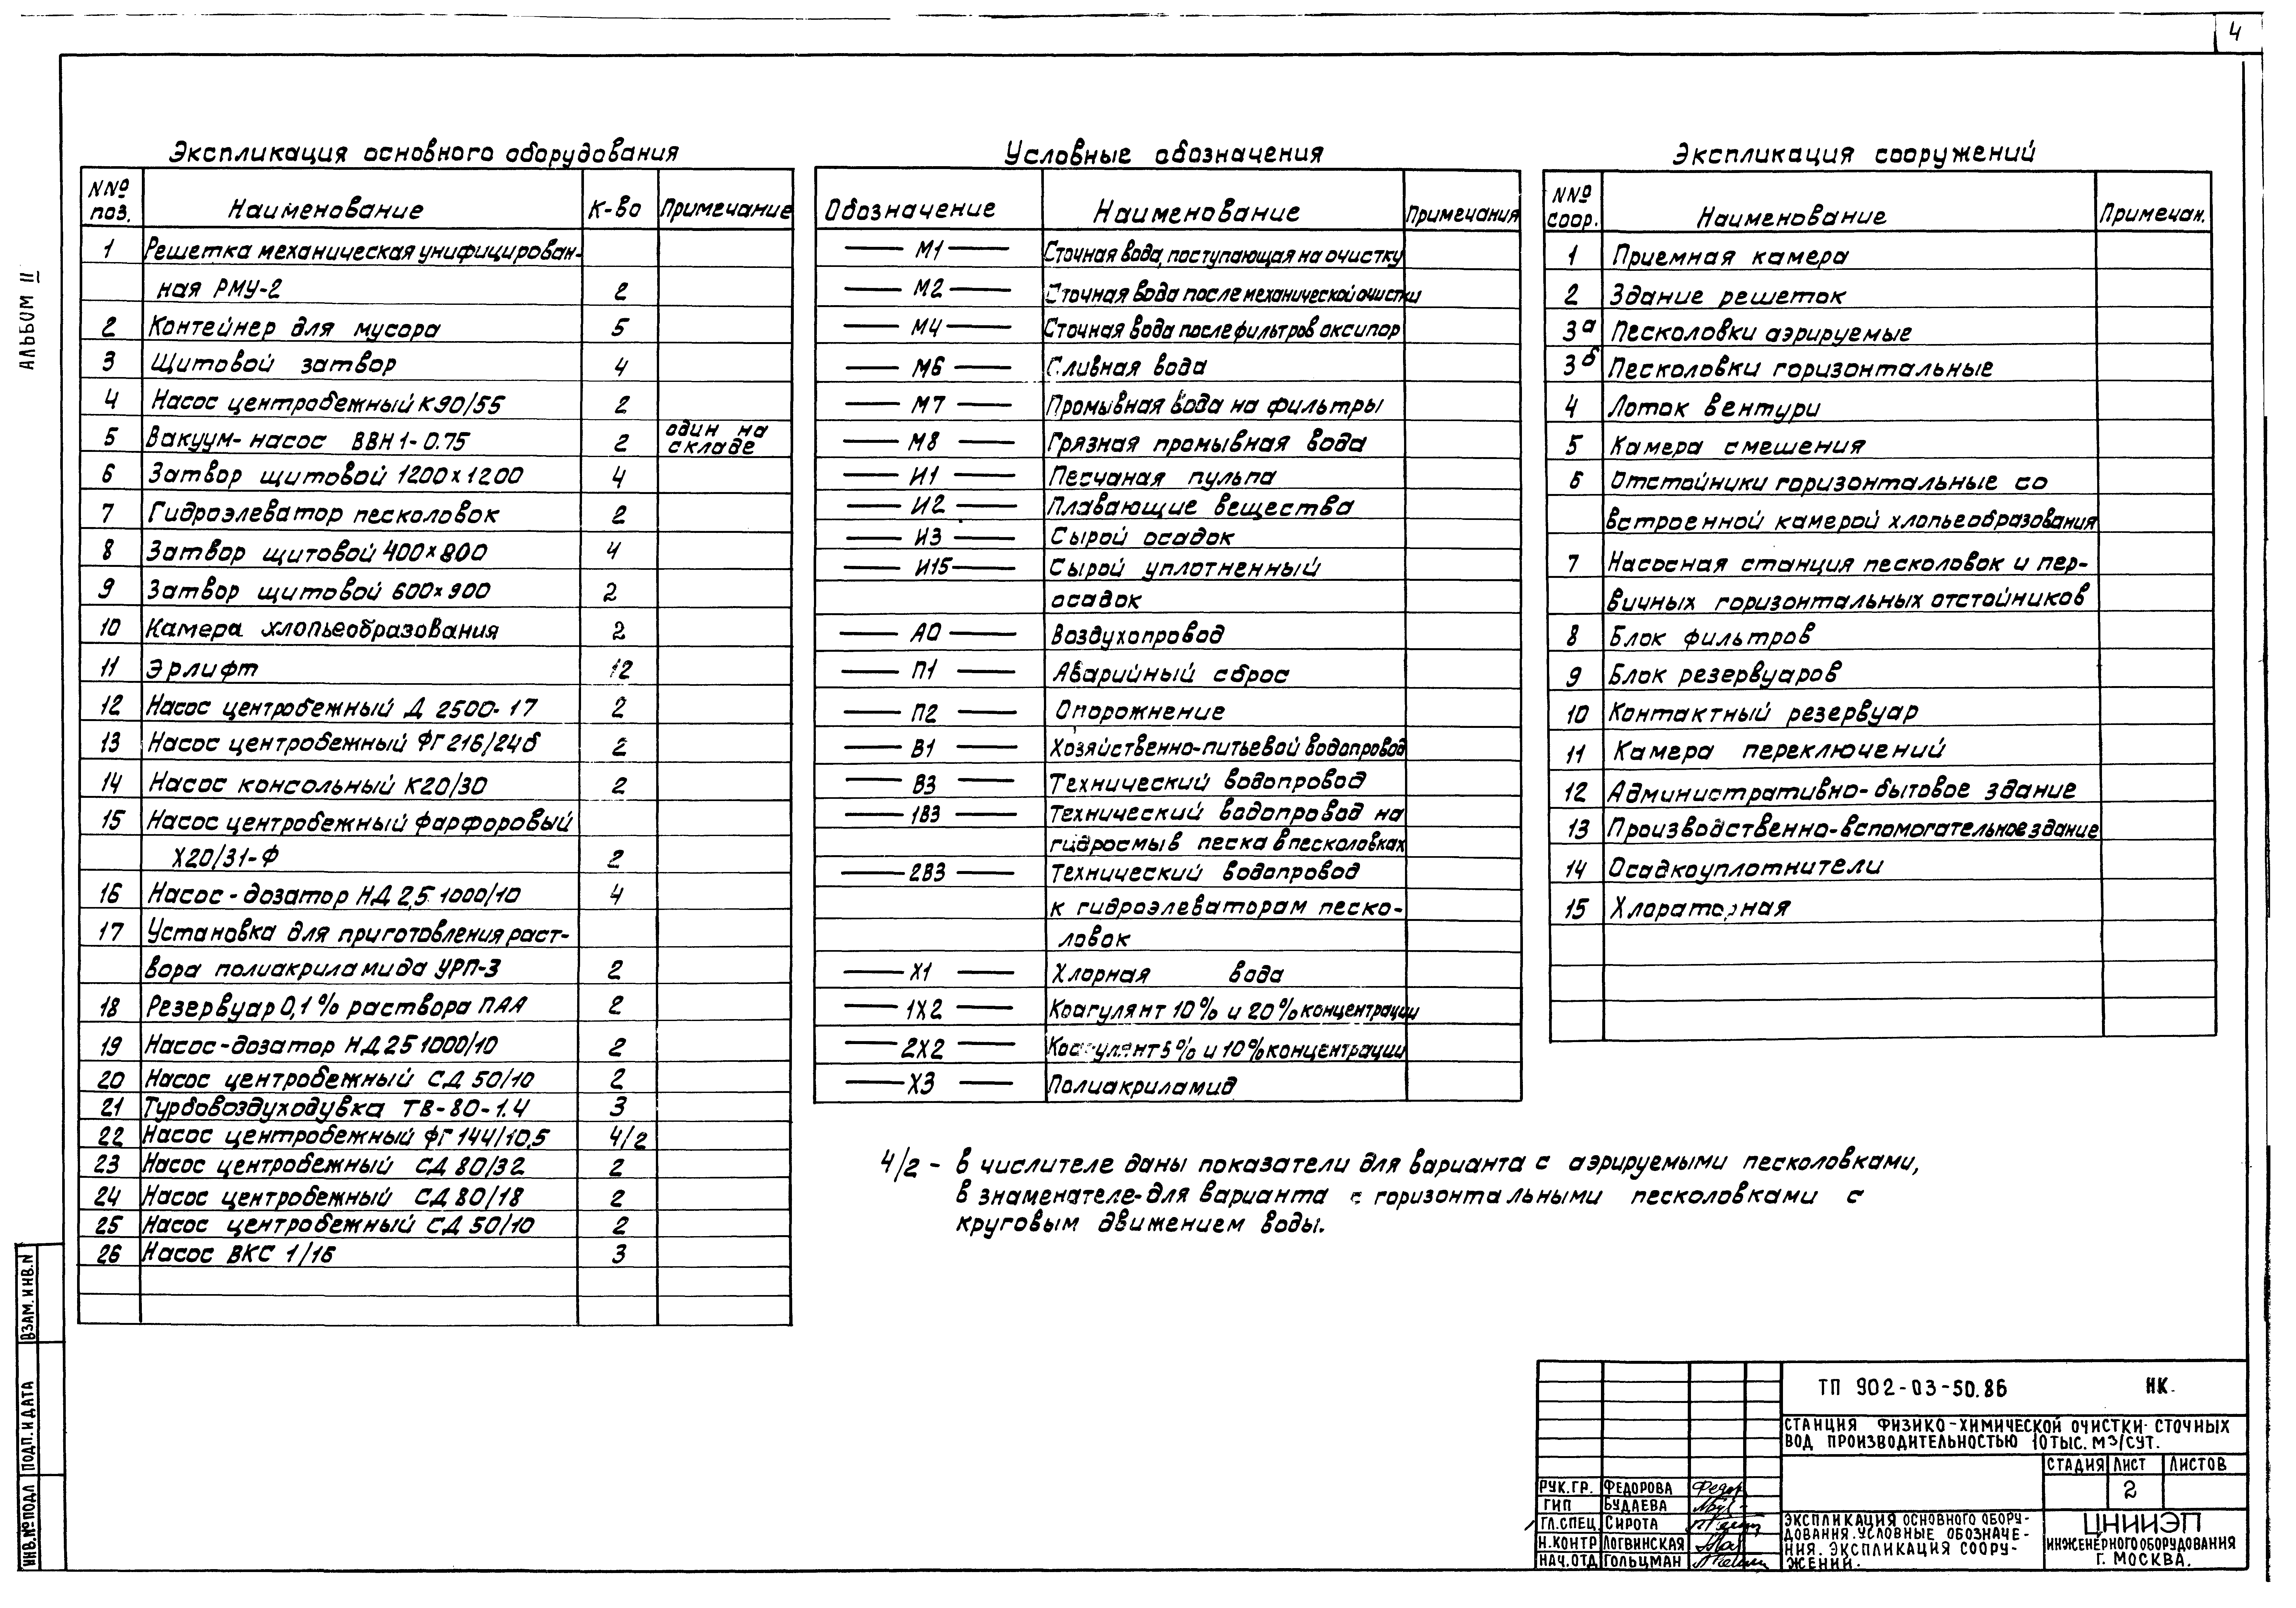 4
АЛЬБОМ II
Экспликация основного оборудования
NNº поз. Наименование К-во Примечание
1 Решетка механическая унифицирован-
ная РМУ-2 2
2 Контейнер для мусора 5
3 Щитовой затвор 4
4 Насос центробежный К90/55 2
5 Вакуум-насос ВВН1-0.75 2 один на складе
6 Затвор щитовой 1200х1200 4
7 Гидроэлеватор песколовок 2
8 Затвор щитовой 400х800 4
9 Затвор щитовой 600х900 2
10 Камера хлопьеобразования 2
11 Эрлифт 12
12 Насос центробежный Д 2500-17 2
13 Насос центробежный ФГ216/24б 2
14 Насос консольный К20/30 2
15 Насос центробежный фарфоровый
Х20/31-Ф 2
16 Насос-дозатор НД 2,5 1000/10 4
17 Установка для приготовления раст-
вора полиакриламида УРП-3 2
18 Резервуар 0,1% раствора ПАА 2
19 Насос-дозатор НД 25 1000/10 2
20 Насос центробежный СД 50/10 2
21 Турбовоздуходувка ТВ-80-1.4 3
22 Насос центробежный ФГ 144/10,5 4/2
23 Насос центробежный СД 80/32 2
24 Насос центробежный СД 80/18 2
25 Насос центробежный СД 50/10 2
26 Насос ВКС 1/16 3
Условные обозначения
Обозначение Наименование Примечания
М1 Сточная вода, поступающая на очистку
М2 Сточная вода после механической очистки
М4 Сточная вода после фильтров оксипор
М6 Сливная вода
М7 Промывная вода на фильтры
М8 Грязная промывная вода
И1 Песчаная пульпа
И2 Плавающие вещества
И3 Сырой осадок
И15 Сырой уплотненный
осадок
А0 Воздухопровод
П1 Аварийный сброс
П2 Опорожнение
В1 Хозяйственно-питьевой водопровод
В3 Технический водопровод
1В3 Технический водопровод на
гидросмыв песка в песколовках
2В3 Технический водопровод
к гидроэлеваторам песко-
ловок
Х1 Хлорная вода
1Х2 Коагулянт 10% и 20% концентрации
2Х2 Коагулянт 5% и 10% концентрации
Х3 Полиакриламид
Экспликация сооружений
NNº соор. Наименование Примечан.
1 Приемная камера
2 Здание решеток
3а Песколовки аэрируемые
3б Песколовки горизонтальные
4 Лоток вентури
5 Камера смешения
6 Отстойники горизонтальные со
встроенной камерой хлопьеобразования
7 Насосная станция песколовок и пер-
вичных горизонтальных отстойников
8 Блок фильтров
9 Блок резервуаров
10 Контактный резервуар
11 Камера переключений
12 Административно-бытовое здание
13 Производственно-вспомогательное здание
14 Осадкоуплотнители
15 Хлораторная
4/2 - в числителе даны показатели для варианта с аэрируемыми песколовками,
в знаменателе-для варианта с горизонтальными песколовками с
круговым движением воды.
ТП 902-03-50.86 НК.
СТАНЦИЯ ФИЗИКО-ХИМИЧЕСКОЙ ОЧИСТКИ СТОЧНЫХ
ВОД ПРОИЗВОДИТЕЛЬНОСТЬЮ 10 ТЫС. М3/СУТ.
СТАДИЯ ЛИСТ ЛИСТОВ
2
РУК.ГР. ФЕДОРОВА
ГИП БУДАЕВА
ГЛ.СПЕЦ. СИРОТА
Н.КОНТР ЛОГВИНСКАЯ
НАЧ.ОТД ГОЛЬЦМАН
ЭКСПЛИКАЦИЯ ОСНОВНОГО ОБОРУ-
ДОВАНИЯ. УСЛОВНЫЕ ОБОЗНАЧЕ-
НИЯ. ЭКСПЛИКАЦИЯ СООРУ-
ЖЕНИЙ.
ЦНИИЭП
ИНЖЕНЕРНОГО ОБОРУДОВАНИЯ
Г. МОСКВА.
ВЗАМ.ИНВ.N
ПОДП. И ДАТА
ИНВ.№ПОДЛ